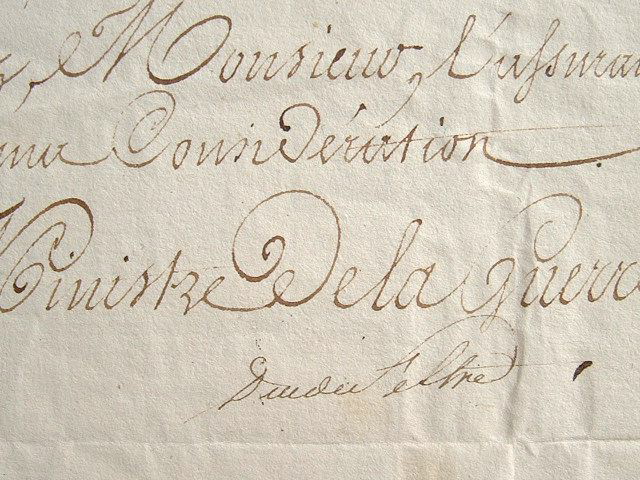 Monsieur, l'assuran
ma Considération
Ministre De la Guerre
Duc de Feltre